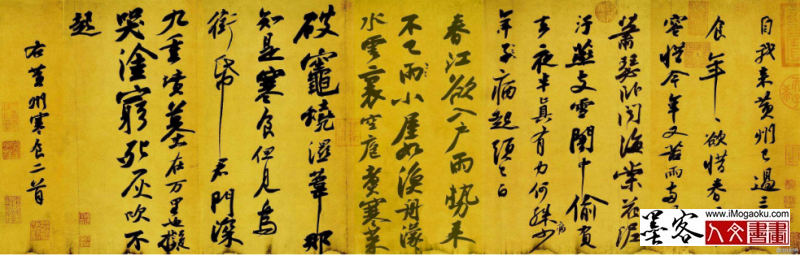 自我来黄州已過三
食年〻欲惜春
容惜今年又苦雨兩
蕭瑟卧聞海棠花泥
汙燕支雪闇中偷負
去夜半真有力何殊少
年子病起頭已白
春江欲入戶雨勢来
不已雨小屋如漁舟濛〻
水雲裏空庖煮寒菜
破竈燒濕葦那
知是寒食但見烏
銜帋君門深
九重墳墓在万里也擬
哭塗窮死灰吹不
起
右黄州寒食二首
www.iMogaoku.com
墨客人文書畫